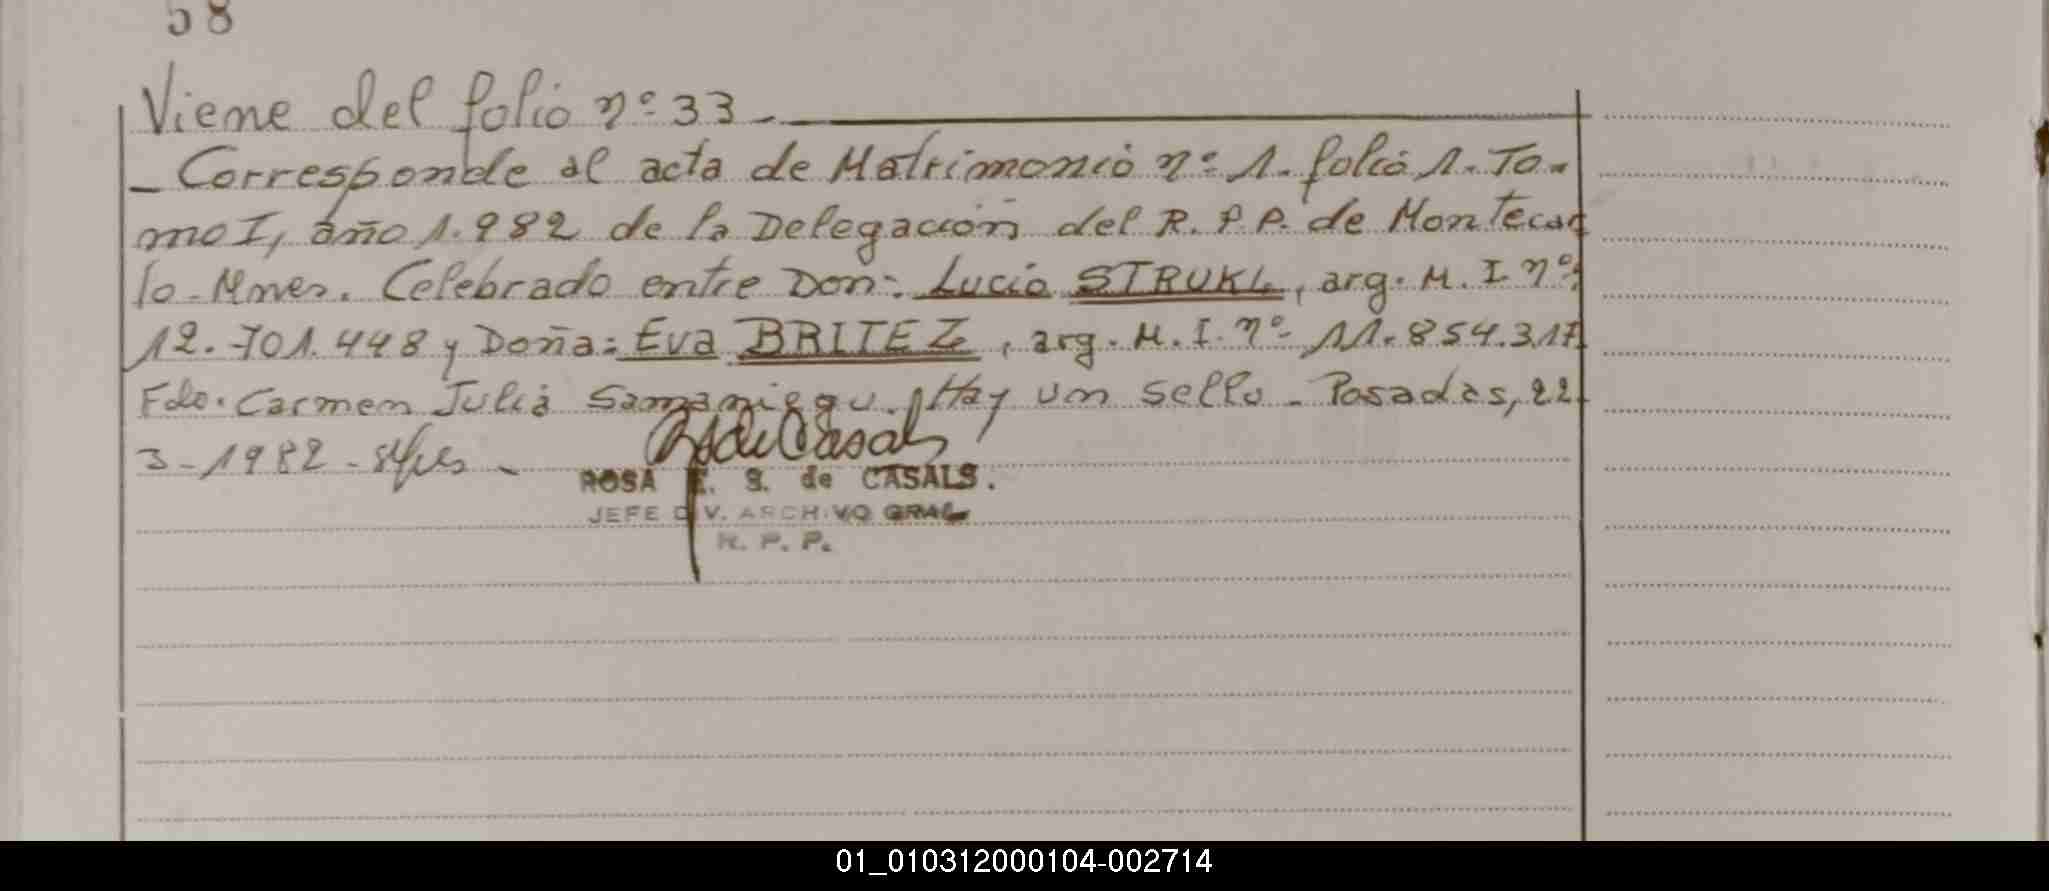 58
Viene del folio nº 33.-
- Corresponde al acta de Matrimonio nº 1. folio 1. To-
mo I, año 1.982 de la Delegación del R.P.P. de Montecar
lo - Mnes. Celebrado entre Don: Lucio STRUKL, arg. M. I. nº
12.701.448 y Doña: Eva BRITEZ, arg. M. I. nº 11.854.317
Fdo. Carmen Julia Samaniego. Hay un sello - Posadas, 22-
3-1982 -
ROSA E. S. de CASALS.
JEFE DIV. ARCHIVO GRAL
R. P. P.
01_010312000104-002714